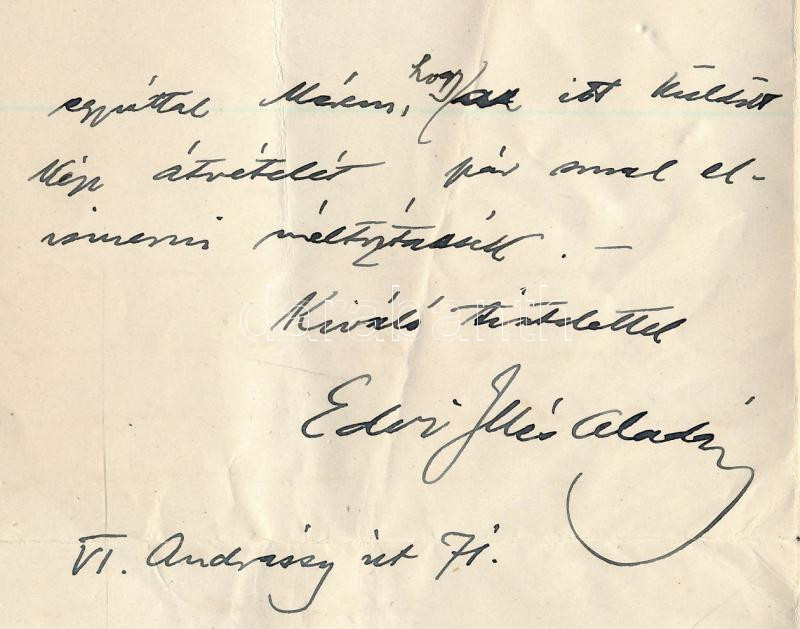 egyúttal kérem, hogy az itt küldött
kép átvételét pár sorral el-
ismerni méltóztassék. —
Kiváló tisztelettel
Edvi Illés Aladár
VI. Andrássy út 71.
darabanth